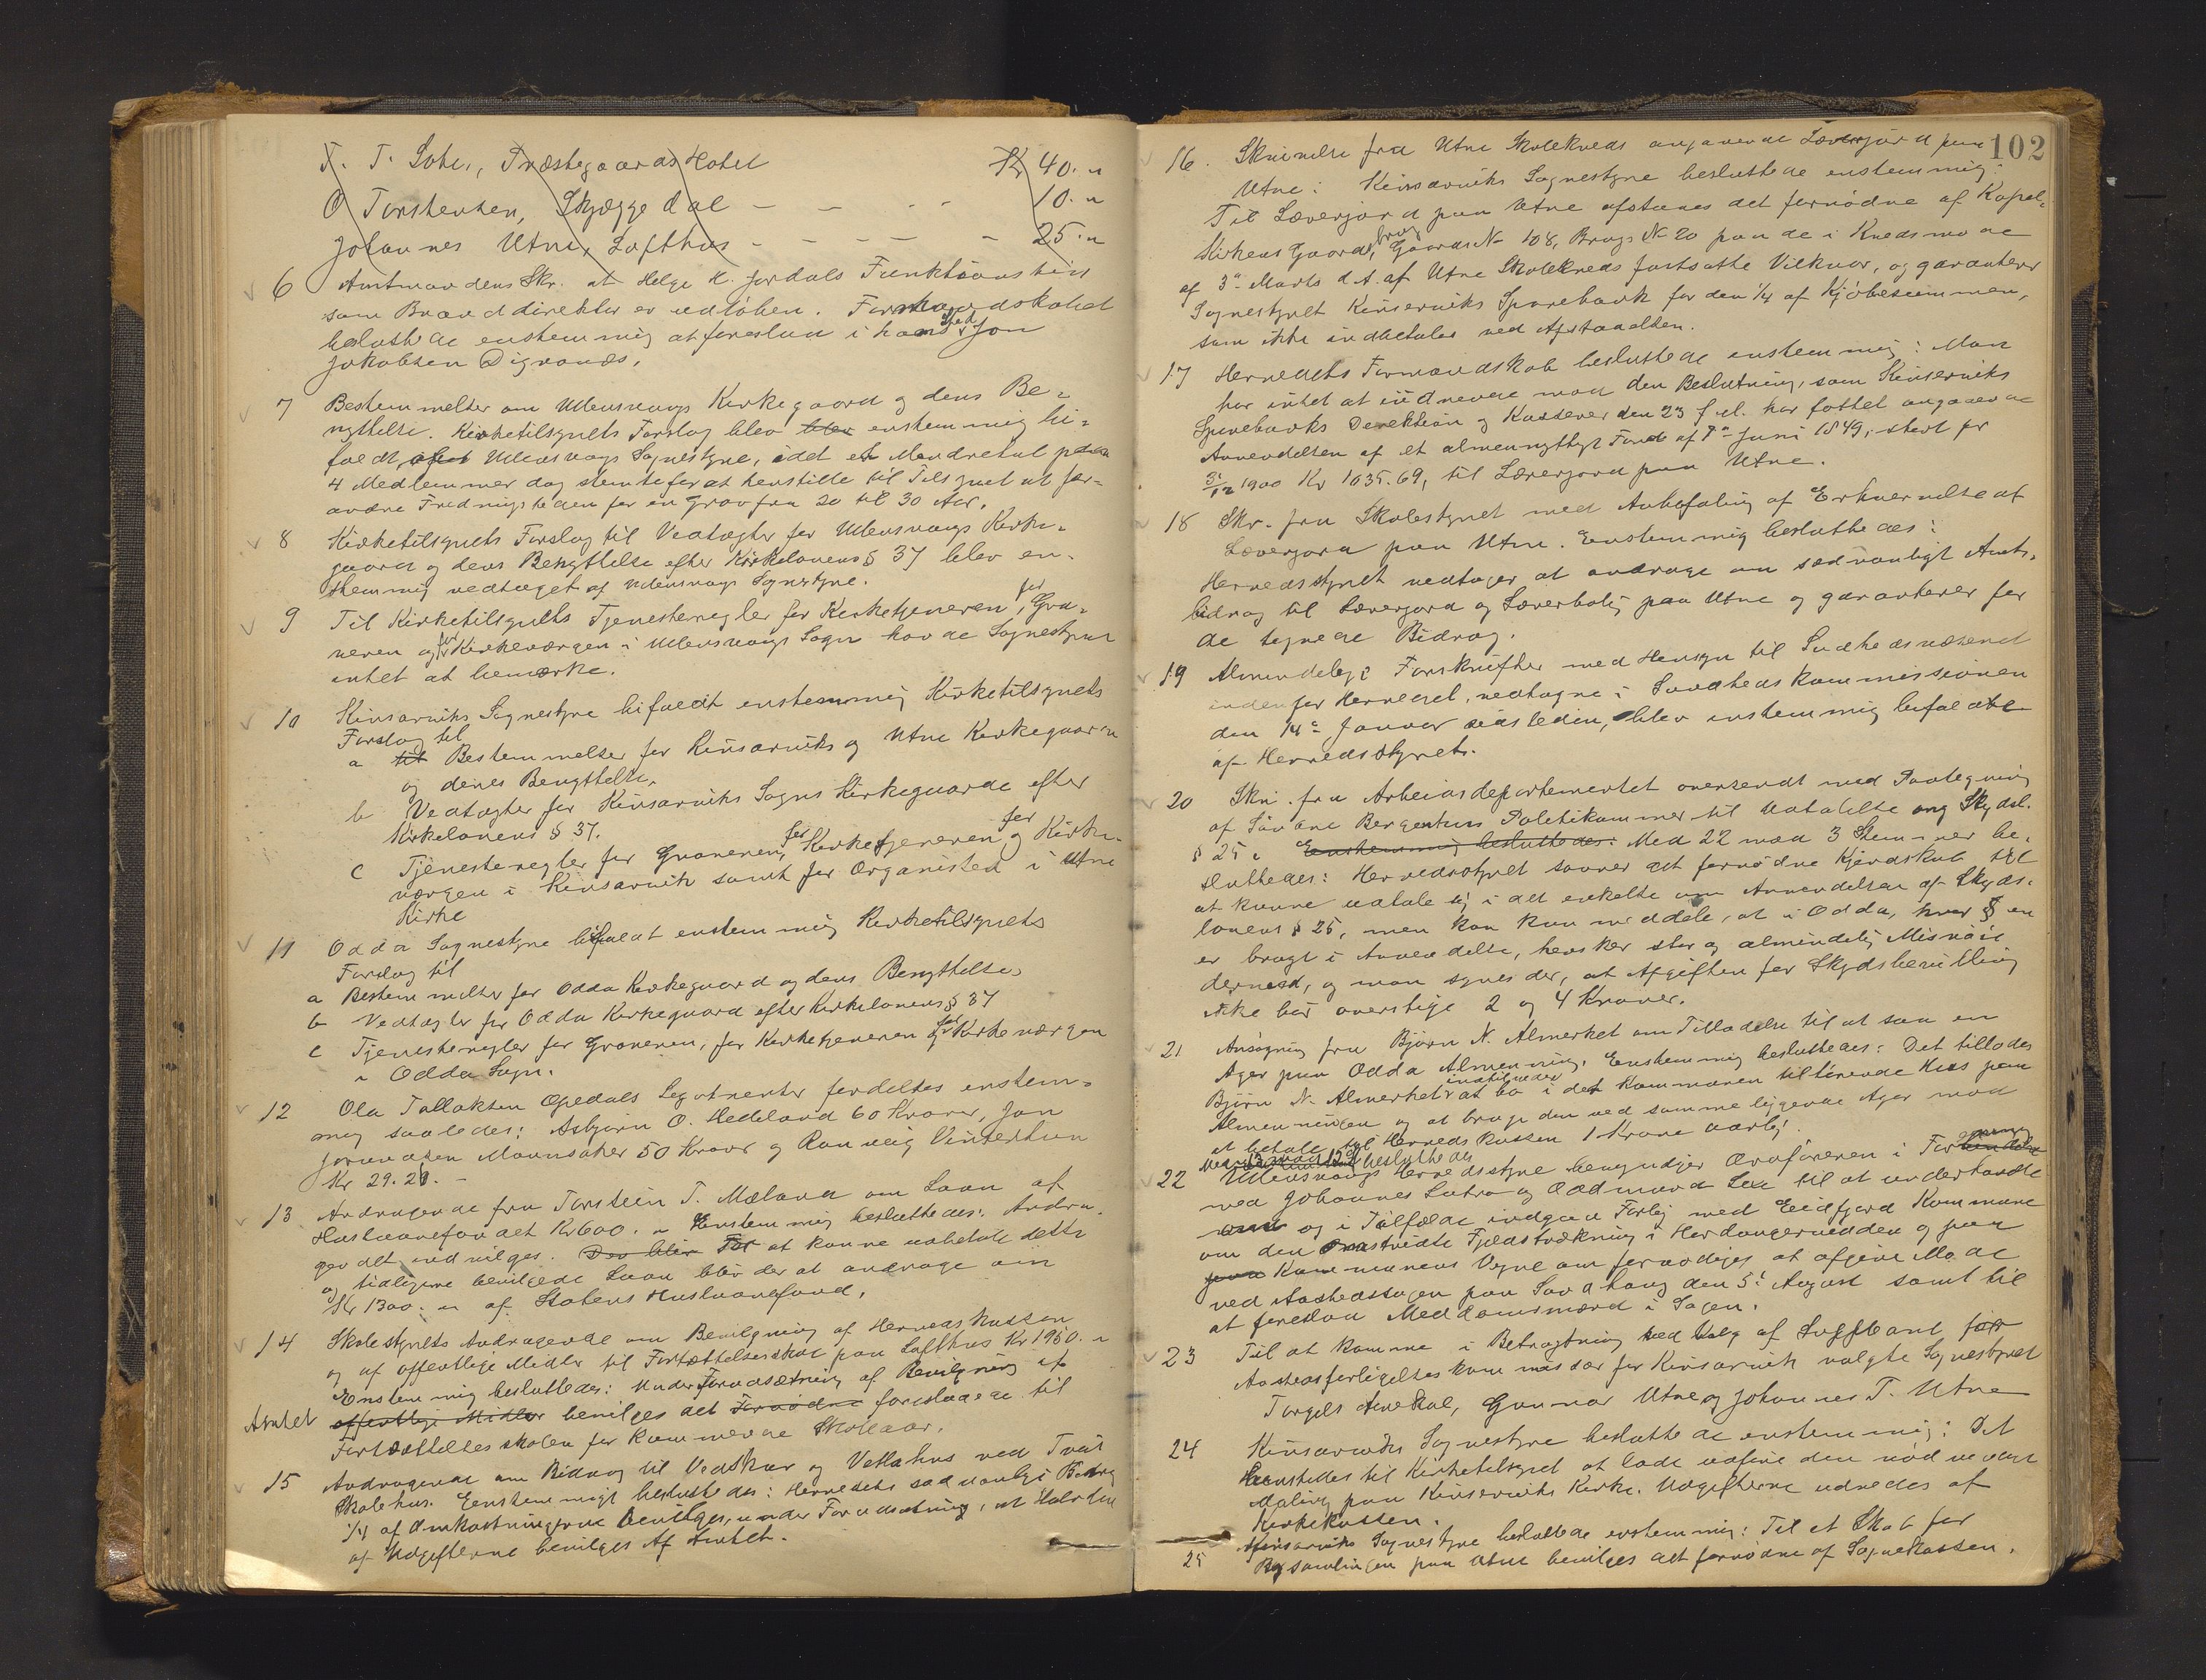 T. T. Lote, Præstegaards Hotel Kr 40. "
O Torstensen, Skjæggedal - - - - 10. "
Johannes Utne, Lofthus - - - - - 25. "
6 Amtmandens Skr. at Helge H. Jordals Funktionstid
som Branddirektør er udløben. Formandskabet
besluttede enstemmig at foreslaa i hans Sted Jon
Jakobsen Digranæs.
7 Bestemmelser om Ullensvangs Kirkegaard og dens Be=
nyttelse. Kirketilsynets Forslag blev blev enstemmig bi=
faldt af Ullensvangs Sognestyre, idet et Mindretal paa
4 Medlemmer dog stemte for at henstille til Tilsynet at for=
andre Fredningstiden for en Grav fra 20 til 30 Aar.
8 Kirketilsynets Forslag til Vedtægter for Ullensvangs Kirke=
gaard og dens Benyttelse efter Kirkelovens § 37 blev en=
stemmig vedtaget af Ullensvangs Sognestyre.
9 Til Kirketilsynets Tjenesteregler for Kirketjeneren, for Gra=
veren og for Kirkeværgen i Ullensvangs Sogn havde Sognestyret
intet at bemærke.
10 Kinsarviks Sognestyre bifaldt enstemmig Kirketilsynets
Forslag til
a til Bestemmelser for Kinsarviks og Utne Kirkegaarde
og deres Benyttelse.
b Vedtægter for Kinsarviks Sogns Kirkegaarde efter
Kirkelovens § 37.
c Tjenesteregler for Graveren, for Kirketjeneren og for Kirke=
værgen i Kinsarvik samt for Organisten i Utne
Kirke
11 Odda Sognestyre bifaldt enstemmig Kirketilsynets
Forslag til
a Bestemmelser for Odda Kirkegaard og dens Benyttelse
b Vedtægter for Odda Kirkegaard efter Kirkelovens § 37
c Tjenesteregler for Graveren, for Kirketjeneren og for Kirkeværgen
i Odda Sogn.
12 Ola Tollaksen Opedals Legatrenter fordeltes enstem=
mig saaledes: Asbjørn O. Hedeland 60 Kroner, Jon
Jørundsen Maunsaker 50 Kroner og Ranveig Vinterhun
Kr 29.21. -
13 Andragende fra Torstein T. Mæland om Laan af
Huslaanefondet Kr 600. " Enstemmig besluttedes: Andra=
gendet indvilges. Der blir For at kunne udbetale dette
og tidligere bevilgede Laan blir der at andrage om
Kr 1300. " af Statens Huslaanefond.
14 Skolestyrets Andragende om Bevilgning af Herredskassen
og af offentlige Midler til Fortsættelsesskole paa Lofthus Kr 1960. "
Enstemmig besluttedes: Under Forudsætning af Bevilgning af
Amtet offentlige Midler bevilges det Fornødne foreslaaede til
Fortsættelsesskolen for kommende Skoleaar.
15 Andragende om Bidrag til Vedskur og Vetlahus ved Tveit
Skolehus. Enstemmigt besluttedes: Herredets sædvanlige Bidrag
1/4 af Omkostningerne bevilges, under Forudsætning, at Halvdelen
af Udgifterne bevilges af Amtet.
102
16. Skrivelse fra Utne Skolekreds angaaende Lærerjord paa
Utne: Kinsarviks Sognestyre besluttede enstemmig:
Til Lærerjord paa Utne afstaaes det fornødne af Kapel=
kirkens Gaard, Gaards No 108, Brugs No 20 paa de i Kredsmøde
af 3die Marts d.A. af Utne Skolekreds fastsatte Vilkaar, og garanterer
Sognestyret Kinserviks Sparebank for den 1/4 af Kjøbesummen,
som ikke indbetales ved Afstaaelsen.
17 Herredets Formandskab besluttede enstemmig: Man
har intet at indvende mod den Beslutning, som Kinserviks
Sparebanks Direktion og Kasserer den 23 f.M. har fattet angaaende
Anvendelsen af et almennyttigt Fond af 7de Juni 1849, stort pr
31/12 1900 Kr 1035.69, til Lærerjord paa Utne.
18 Skr. fra Skolestyret med Anbefaling af Erhvervelse af
Lærerjord paa Utne. Enstemmig besluttedes:
Herredsstyret vedtager at andrage om sædvanligt Amts=
bidrag til Lærerjord og Lærerbolig paa Utne og garanterer for
de tegnede Bidrag.
19 Almindelige Forskrifter med Hensyn til Sundhedsvæsenet
inden for Herredet, vedtagne i Sundhedskommissionen
den 14de Januar sidstleden, blev enstemmig bifaldt
af Herredsstyret.
20 Skr. fra Arbeidsdepartementet oversendt med Paategning
af Søndre Bergenhus Politikammer til Udtalelse ang Skydsl.
§ 25. Enstemmig besluttedes: Med 22 mod 3 Stemmer be=
sluttedes: Herredsstyret savner det fornødne Kjendskab til
at kunne udtale sig i det enkelte om Anvendelsen af Skyds=
lovens § 25, men kan kun meddele, at i Odda, hvor § en
er bragt i Anvendelse, hersker stor og almindelig Misnøie
dermed, og man synes der, at Afgiften for Skydsbevilling
ikke bør overstige 2 og 4 Kroner.
21 Ansøgning fra Bjørn N. Almerket om Tilladelse til at saa en
Ager paa Odda Almenning. Enstemmig besluttedes: Det tillades
Bjørn N. Almerket indtil videre at bo i det Kommunen tilhørende Hus paa
Almenningen og at bruge den ved samme liggende Ager mod
at betale til Herredskassen 1 Krone aarlig.
22 Med 13 mod 12 besluttedes
Ullensvangs Herredsstyre bemyndiger Ordføreren i Forening
med Johannes Lutro og Oddmund Lexe til at underhandle
om og i Tilfælde indgaa Forlig med Eidfjord Kommune
om den omstridte Fjeldstrækning i Hardangervidden og paa
paa Kommunens Vegne om fornødiges at afgive Møde
ved Aastedssagen paa Sandhaug den 5te August samt til
at foreslaa Meddomsmænd i Sagen.
23 Til at komme i Betragtning ved Valg af Suppleant for
Aastedsforligelseskommissær for Kinsarvik valgte Sognestyret
Torgils Aunekal, Gunnar Utne og Johannes T. Utne
24 Kinsarviks Sognestyre besluttede enstemmig: Det
henstilles til Kirketilsynet at lade udføre den nødvendige
Maling paa Kinserviks Kirke. Udgifterne udredes af
Kirkekassen.
25 Kinsarviks Sognestyre besluttede enstemmig: Til et Skab for
Bogsamlingen paa Utne bevilges det fornødne af Sognekassen.